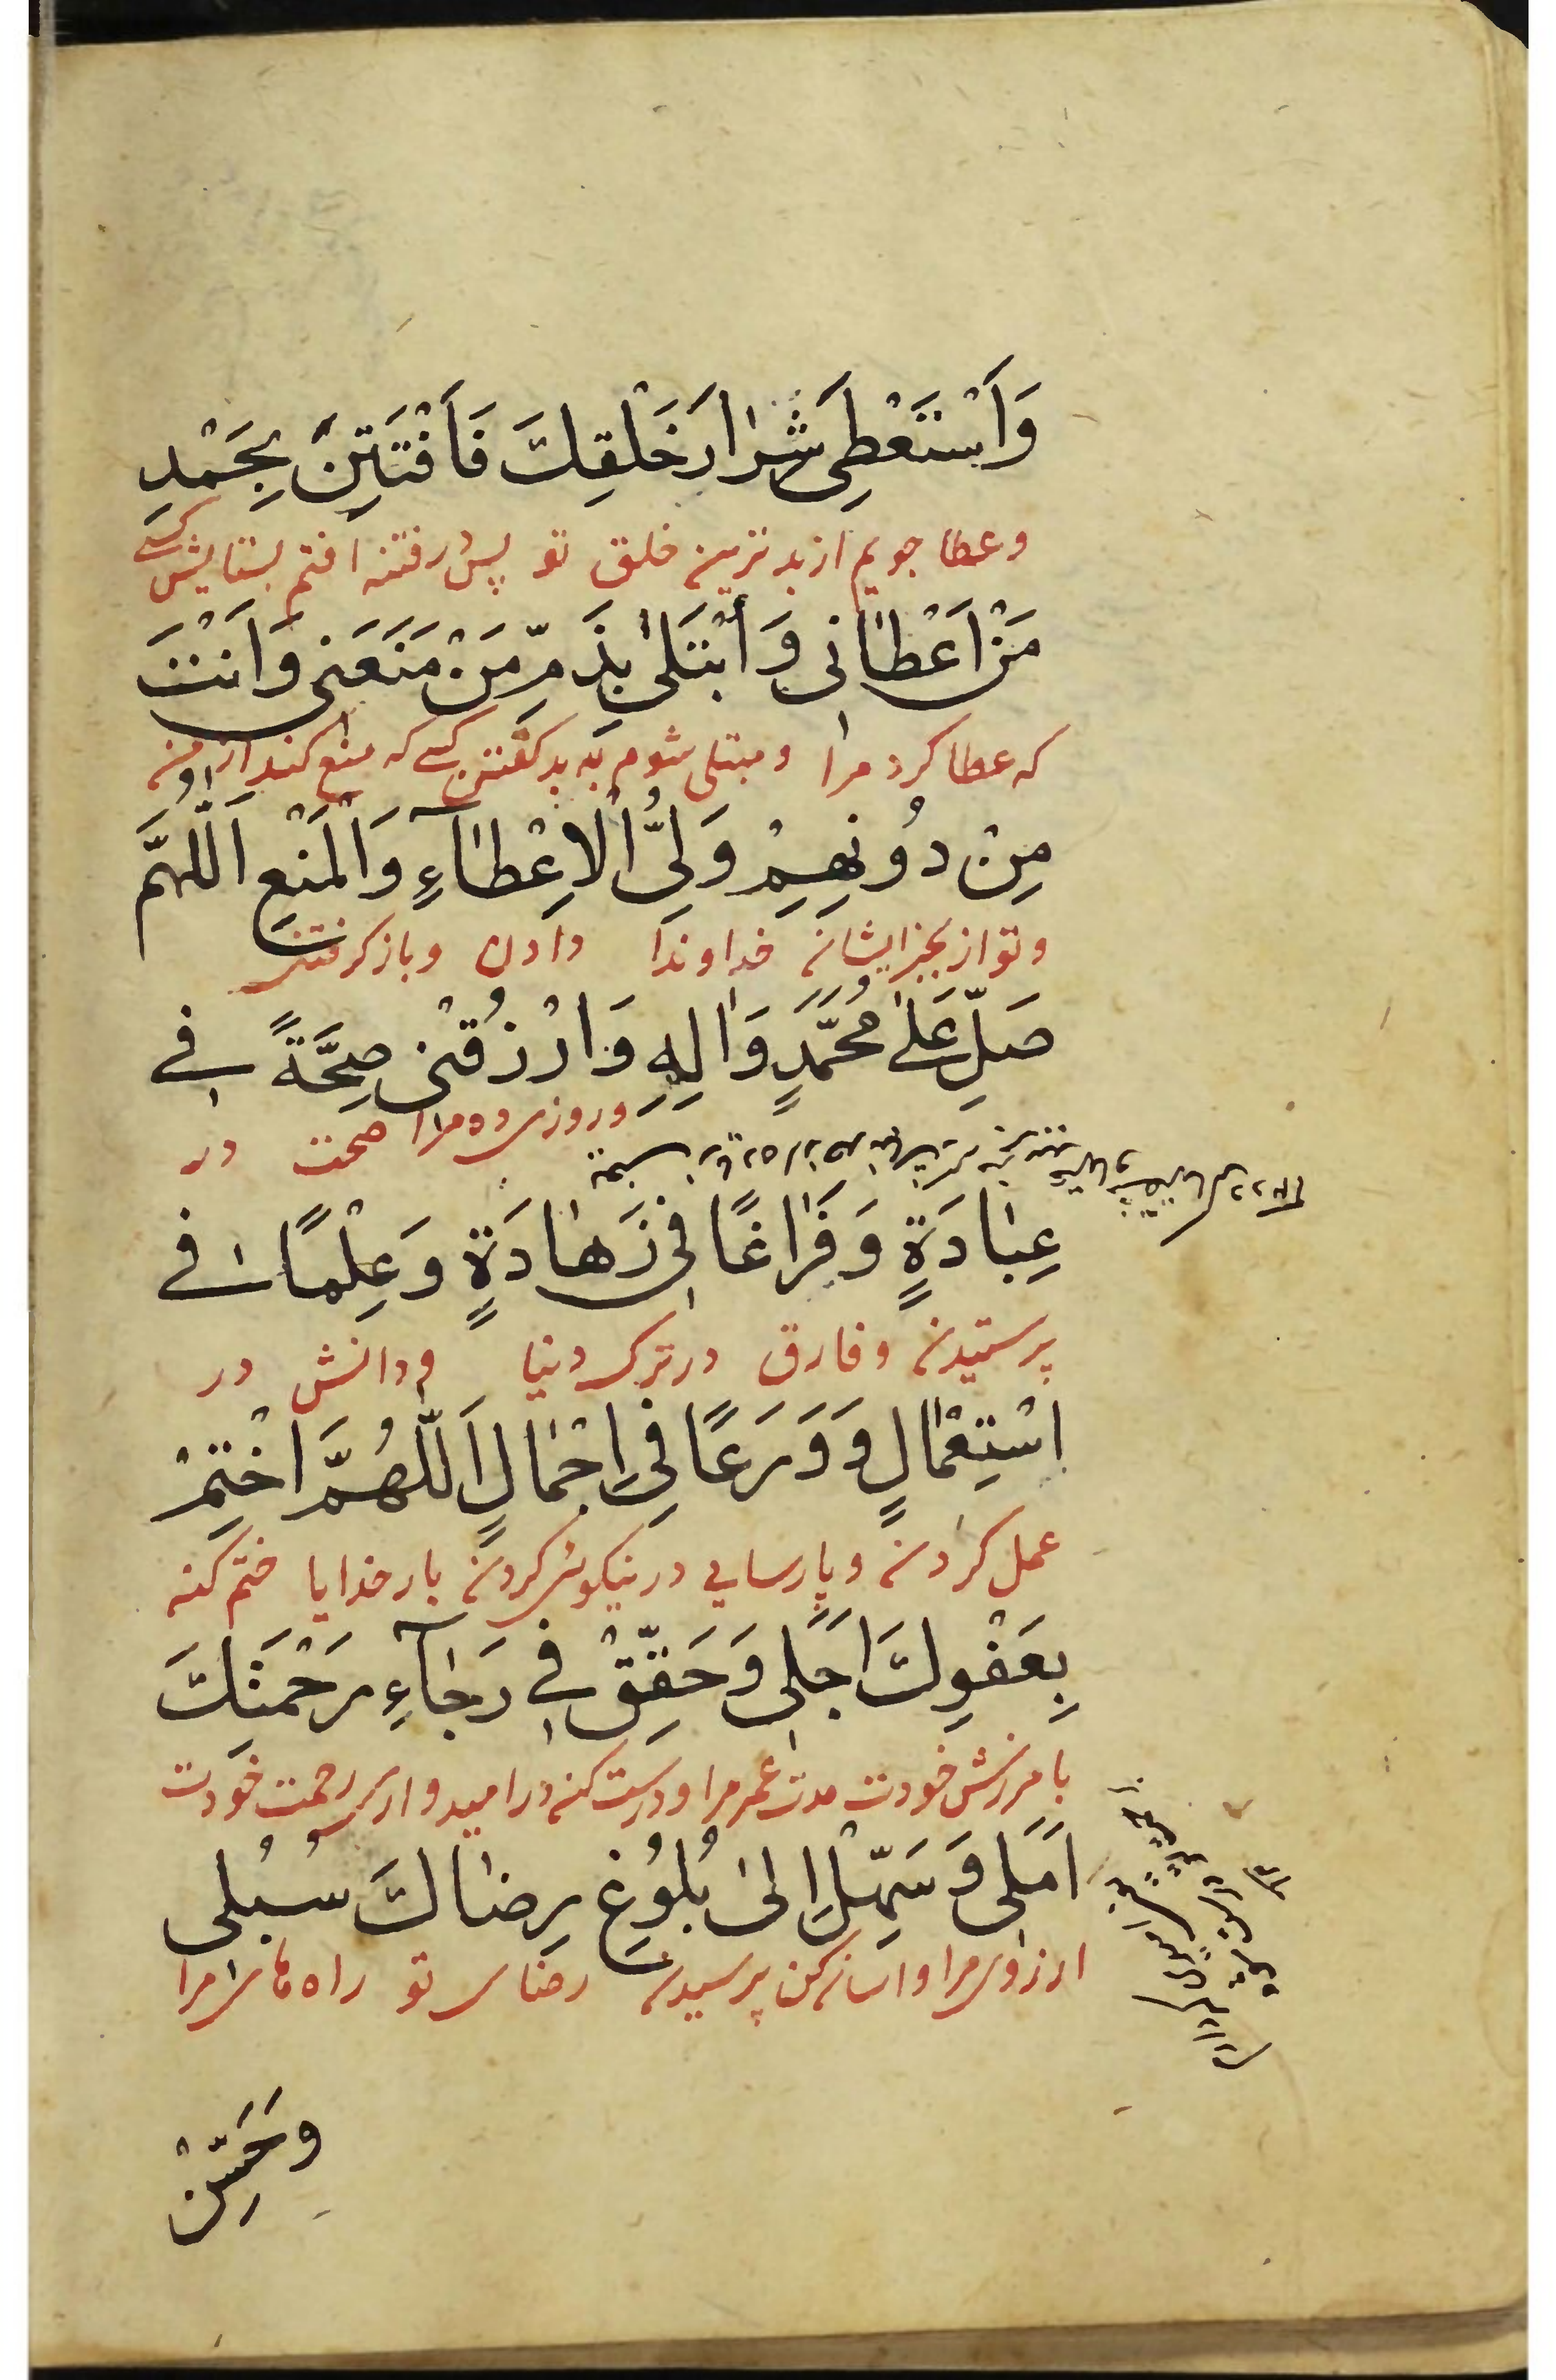 وَاَسْتَعْطِيَ شَرارَ خَلْقِكَ فَاَفْتَتِنَ بِحَمْدِ
و عطا جویم از بدترین خلق تو پس در فتنه افتم بستایش کسے
مَنْ اَعْطانى وَ اُبْتَلىٰ بِذَمِّ مَنْ مَنَعَنى وَ اَنْتَ
که عطا کرد مرا و مبتلی شوم به بد کفتن کسے که منع کند از من
مِنْ دُونِهِمْ وَلِىُّ الْاِعْطآءِ وَالْمَنْعِ اَللّٰهُمَّ
و تو از بجز ایشان خداوند دادن و باز کرفتنے
صَلِّ عَلىٰ مُحَمَّدٍ وَ الِهِ وَ ارْزُقْنى صِحَّةً فى
و روزی ده مرا صحت در
عِبادَةٍ وَ فَراغًا فى زَهادَةٍ وَ عِلْمًا فى
پرستیدن و فارق در ترک دنیا و دانش در
اسْتِعْمالٍ وَ وَرَعًا فى اِجْمالٍ اَللّٰهُمَّ اخْتِمْ
عمل کردن و پارسایی در نیکوئی کردن بار خدایا ختم کن
بِعَفْوِكَ اَجَلى وَ حَقِّقْ فى رَجآءِ رَحْمَتِكَ
بامرزش خودت مدت عمر مرا و درست کن در امیدواری رحمت خودت
اَمَلى وَ سَهِّلْ اِلىٰ بُلُوغِ رِضاكَ سُبُلى
ارزوی مرا و اسان کن برسیدن رضای تو راه های مرا
وَحَسِّنْ